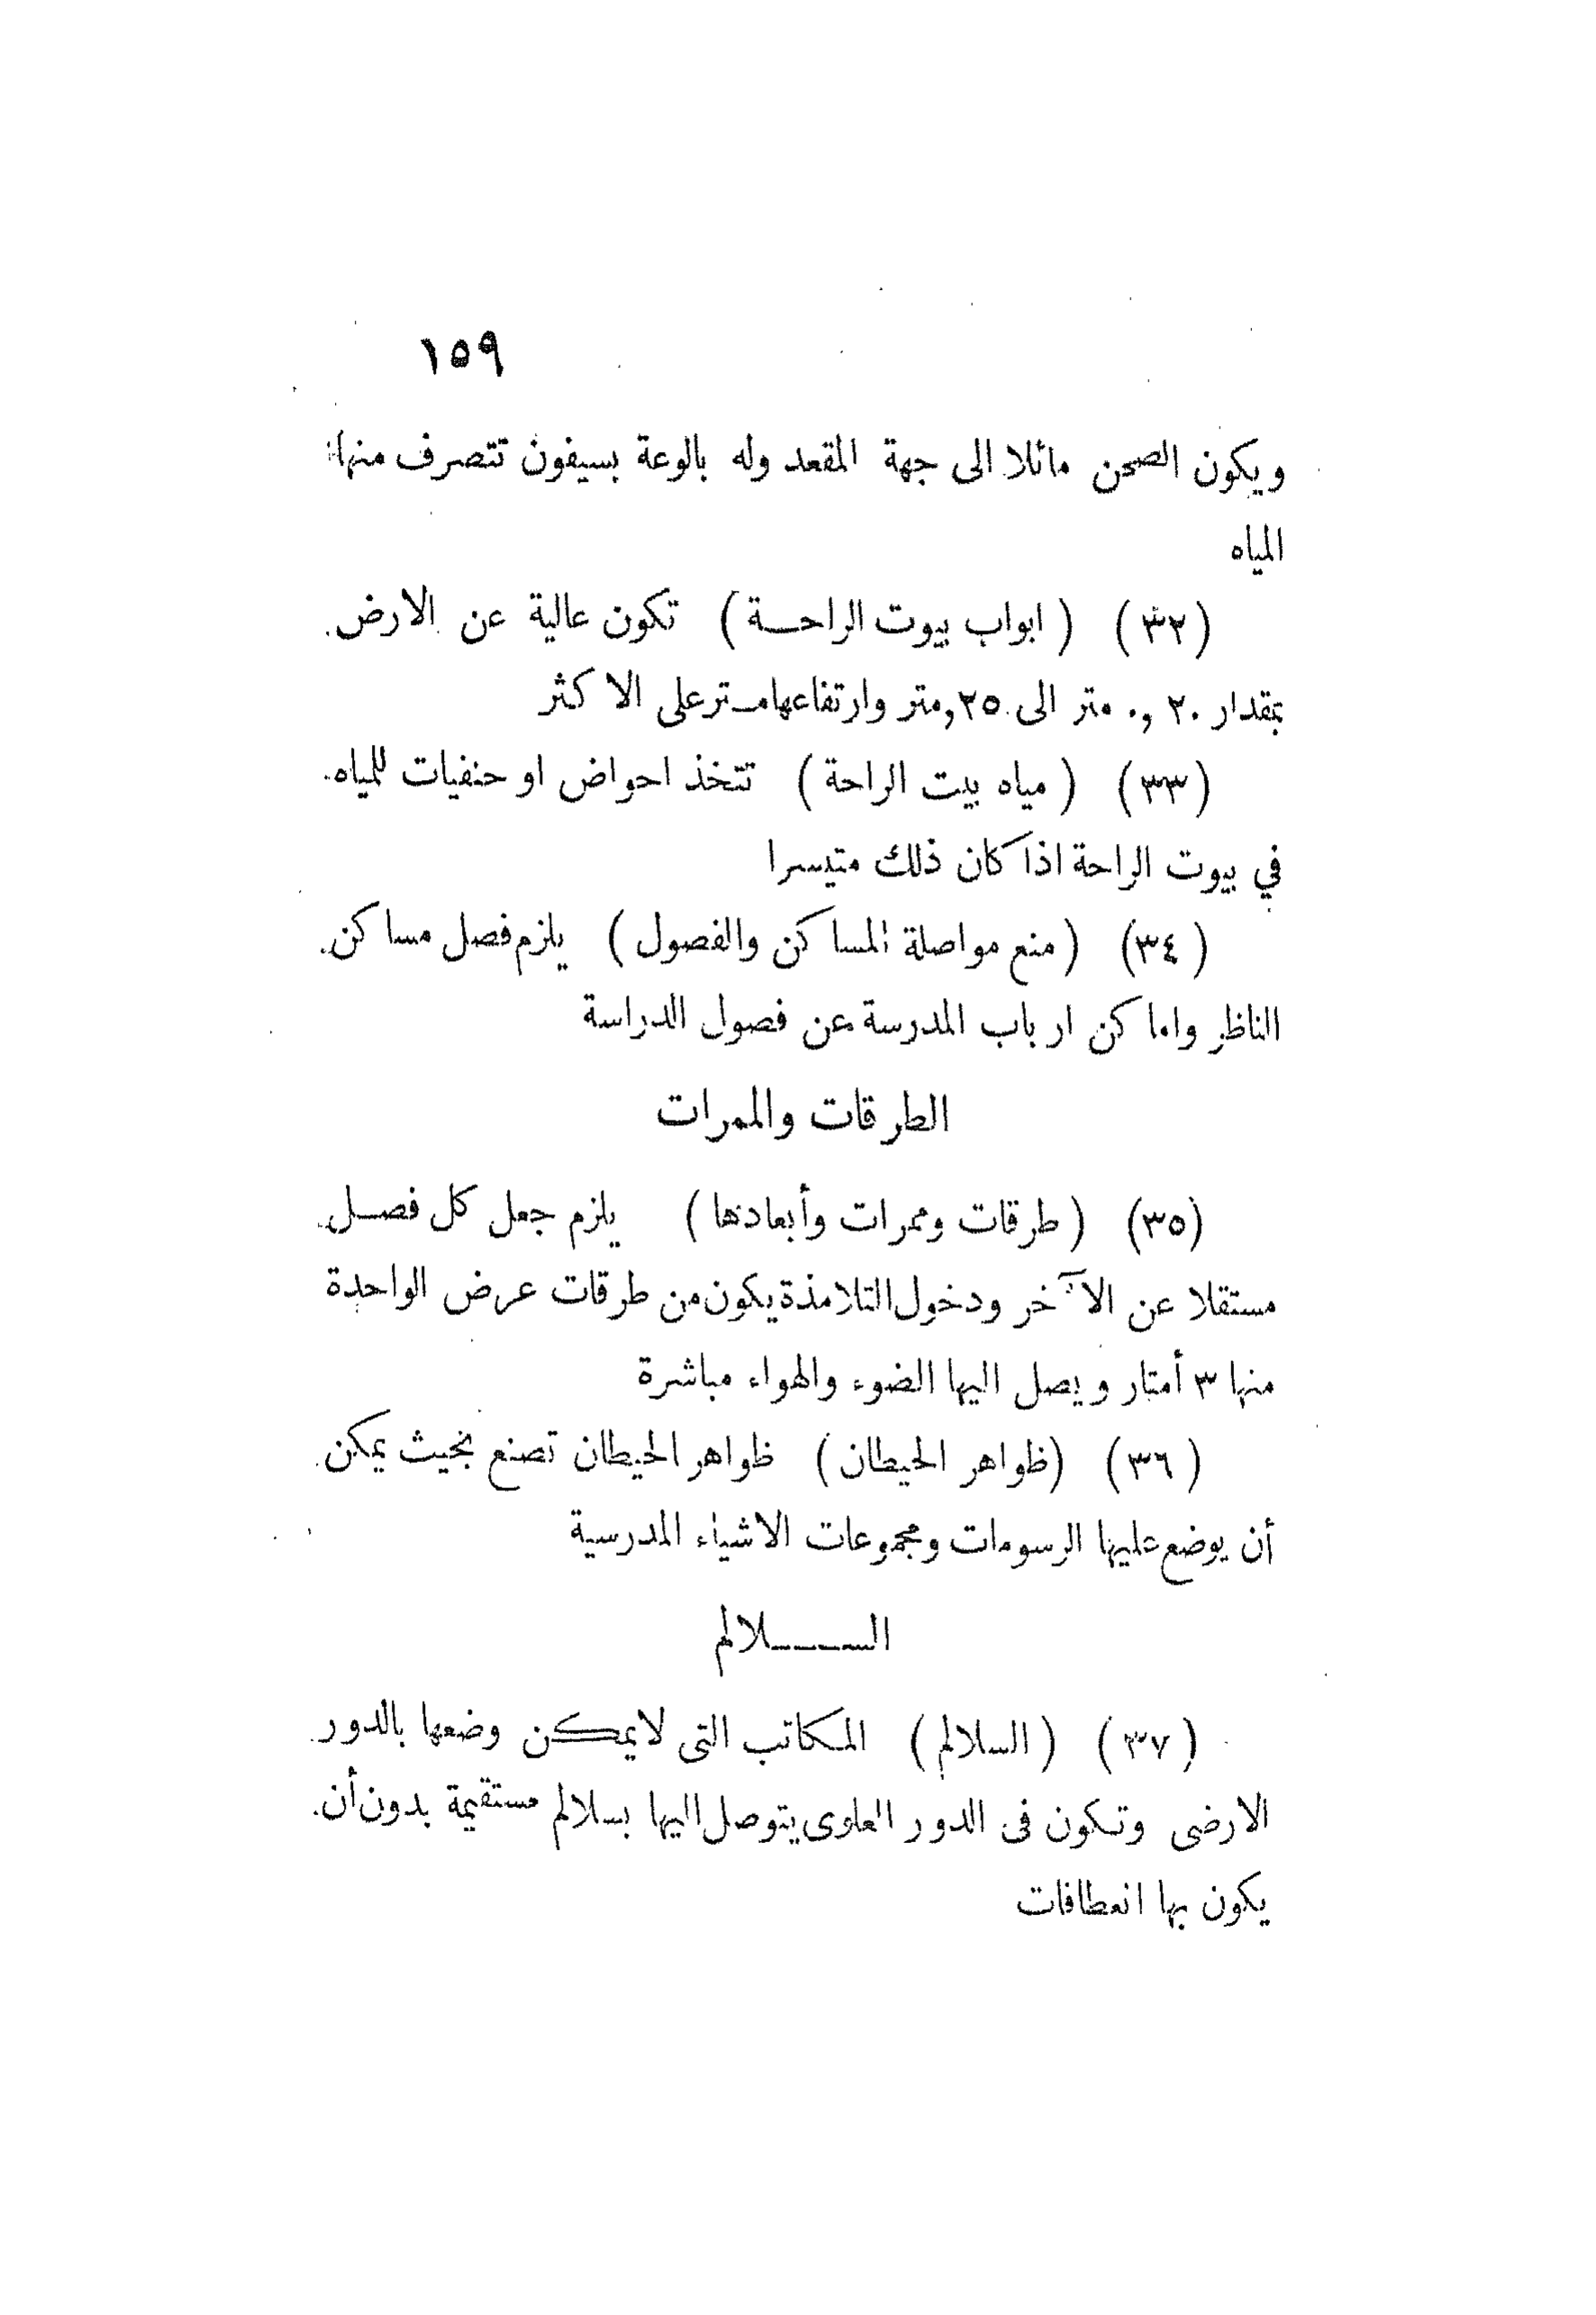 ١٥٩
ويكون الصحن مائلا الى جهة المقعد وله بالوعة بسيفون تتصرف منها
المياه
(٣٢) (ابواب بيوت الراحـة) تكون عالية عن الارض
بمقدار ٢٠,٠ متر الى ٢٥,متر وارتفاعهامـترعلى الاكثر
(٣٣) (مياه بيت الراحة) تتخذ احواض او حنفيات للمياه
في بيوت الراحة اذا كان ذلك متيسرا
(٣٤) (منع مواصلة المساكن والفصول) يلزم فصل مساكن
الناظر واماكن ارباب المدرسة عن فصول الدراسة
الطرقات والممرات
(٣٥) (طرقات وممرات وأبعادها) يلزم جعل كل فصـل
مستقلا عن الآخر ودخول التلامذة يكون من طرقات عرض الواحدة
منها ٣ أمتار ويصل اليها الضوء والهواء مباشرة
(٣٦) (ظواهر الحيطان) ظواهر الحيطان تصنع بحيث يمكن
أن يوضع عليها الرسومات ومجموعات الاشياء المدرسية
الســـــلالم
(٣٧) (السلالم) المكاتب التى لايمكـن وضعها بالدور
الارضى وتكون فى الدور العلوى يتوصل اليها بسلالم مستقيمة بدون أن
يكون بها انعطافات